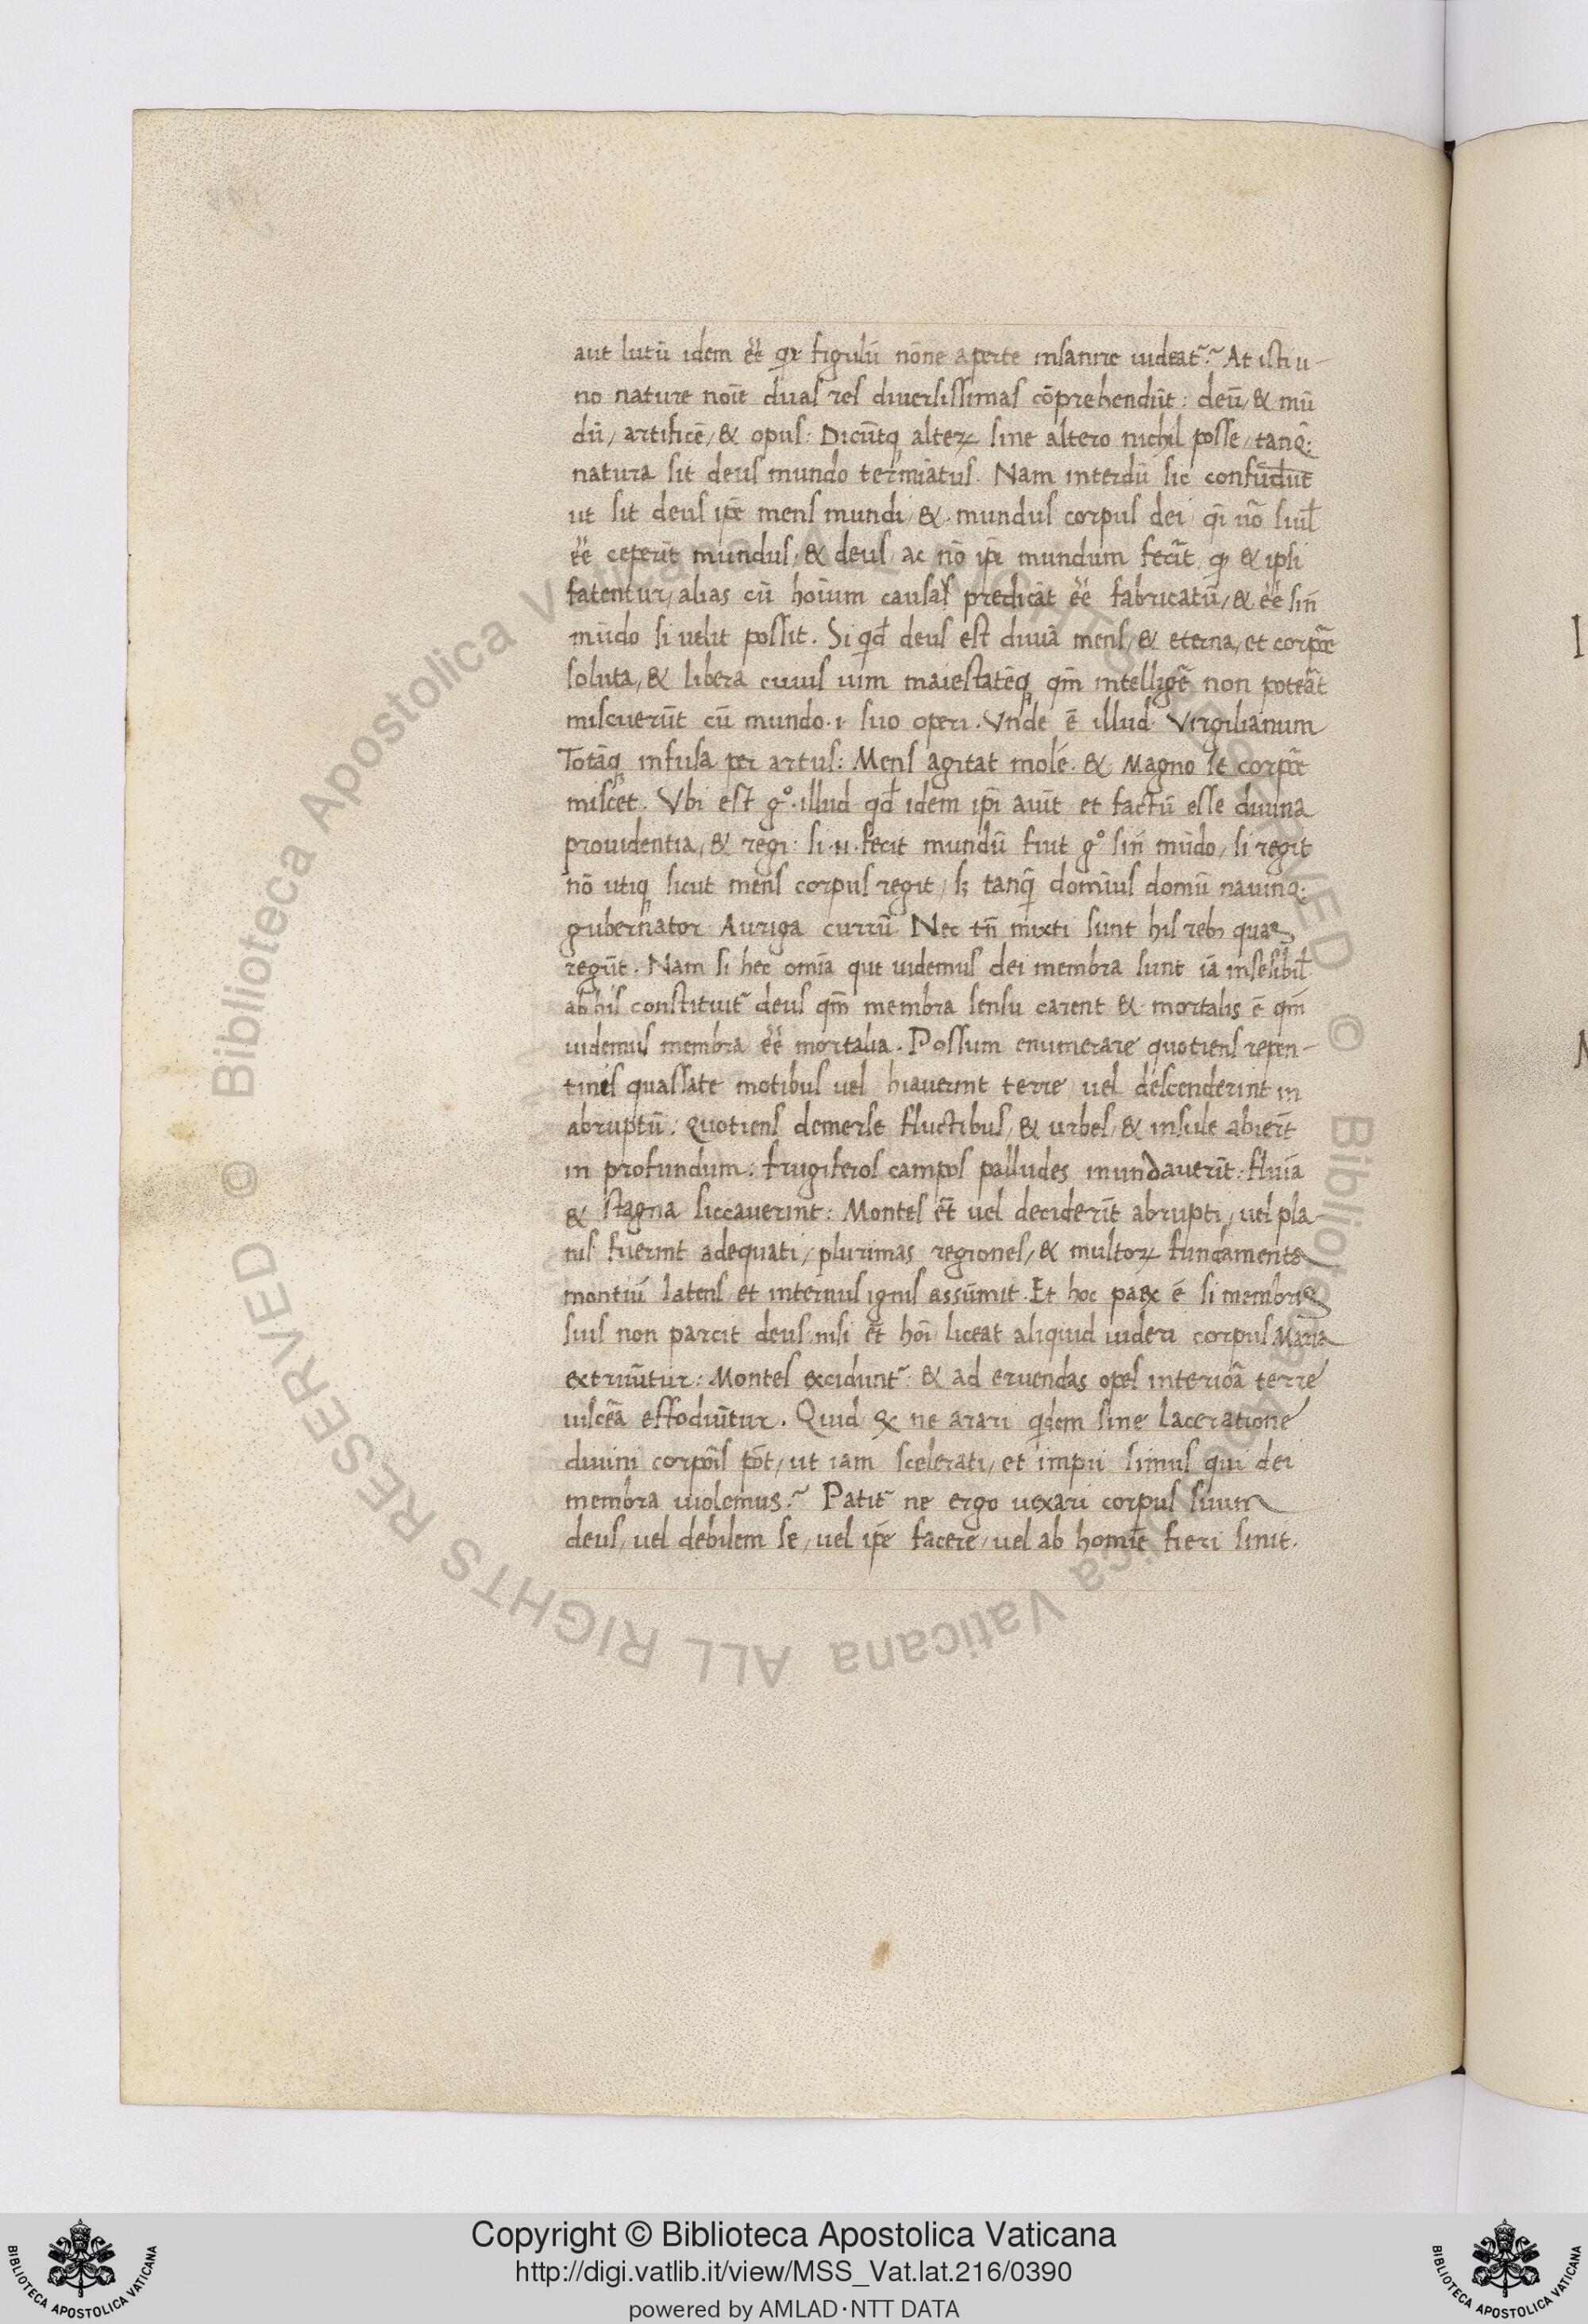 aut lutū idem eē̄t qr̄ figulū nōne aperte insanire uideat᷑? At isti u-
no nature noīe duas res diuersissimas cōprehendūt: deū, & mū
dū, artificē, & opus: Dicūtq; alteꝝ sine altero nichil posse, tanq̄:
natura sit deus mundo termiātus. Nam interdū sic confūdūt
ut sit deus ipē mens mundi, & mundus corpus dei qī nō simł
eē̄ ceperit mundus, & deus, ac nō ipē mundum fecit, qͦ & ipsi
fatentur, alias cū hoīum causas predicāt eē̄ fabricatū, & eē̄ sin̄
mūdo si uelit possit. Si qͥd deus est diuīa mens, & eterna, et corpōe
soluta, & libera cuius uim maiestatēq; qm̄ intelligē non poteāt
miscuerūt cū mundo .i. suo operi. Vnde ē illud Virgilianum
Totāq; infusa per artus: Mens agitat molē. & Magno se corpōe
miscet. Vbi est g° illud qd̄ idem ipī aiūt et factū esse diuina
prouidentia, & regi: si .n. fecit mundū fuit g° sin̄ mūdo, si regit
nō utiq; sicut mens corpus regit, sꝫ tanq̄ domīus domū nauīq;
gubernator Auriga currū. Nec tn̄ mixti sunt his rebꝫ quas
regūt. Nam si hec omīa que uidemus dei membra sunt iā insēsibił
ab his constituit᷑ deus qm̄ membra sensu carent & mortalis ē qm̄
uidemus membra eē̄ mortalia. Possum enumerare quotiens repen-
tinis quassate motibus uel hiauerint terre uel descenderint in
abruptū: Quotiens demerse fluctibus, & urbes, & insule abierīt
in profundum: frugiferos campos palludes inundauerīt: fluīa
& stagna siccauerint: Montes et̄ uel deciderīt abrupti, uel pla-
nis fuerint adequati, plurimas regiones, & multoꝝ fundamenta
montiū latens, et internus ignis assūmit. Et hoc paꝝ ē si membris
suis non parcit deus nisi et̄ hoī liceat aliquid uideri corpus Maria
extruūtur: Montes excidunt᷑: & ad eruendas opes interiōa terre
uiscēa effodiūtur. Quid ꝙ ne arari qͥdem sine laceratione
diuini corpōis pōt, ut iam scelerati, et impii simus qui dei
membra uiolemus? Patit᷑ ne ergo uexari corpus suum
deus, uel debilem se, uel ipē facere, uel ab homīe fieri sinit.
Copyright © Biblioteca Apostolica Vaticana
http://digi.vatlib.it/view/MSS_Vat.lat.216/0390
powered by AMLAD·NTT DATA
BIBLIOTECA APOSTOLICA VATICANA
BIBLIOTECA APOSTOLICA VATICANA
© Biblioteca Apostolica Vaticana ALL RIGHTS RESERVED © Biblioteca Apostolica Vaticana ALL RIGHTS RESERVED